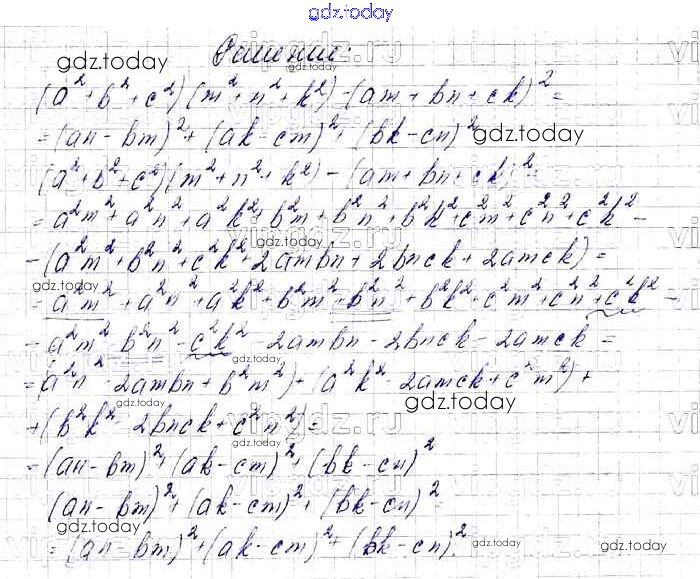 gdz.today
Решение:
(a²+b²+c²)(m²+n²+k²)-(am+bn+ck)²=
=(an-bm)²+(ak-cm)²+(bk-cn)²
(a²+b²+c²)(m²+n²+k²)-(am+bn+ck)²=
=a²m²+a²n²+a²k²+b²m²+b²n²+b²k²+c²m²+c²n²+c²k²-
-(a²m²+b²n²+c²k²+2ambn+2bnck+2amck)=
=a²m²+a²n²+a²k²+b²m²+b²n²+b²k²+c²m²+c²n²+c²k²-
-a²m²-b²n²-c²k²-2ambn-2bnck-2amck=
=(a²n²-2ambn+b²m²)+(a²k²-2amck+c²m²)+
+(b²k²-2bnck+c²n²)=
=(an-bm)²+(ak-cm)²+(bk-cn)²
(an-bm)²+(ak-cm)²+(bk-cn)²=
=(an-bm)²+(ak-cm)²+(bk-cn)².
gdz.today
gdz.today
gdz.today
gdz.today
gdz.today
gdz.today
gdz.today
gdz.today
gdz.today
gdz.today
gdz.today
gdz.today